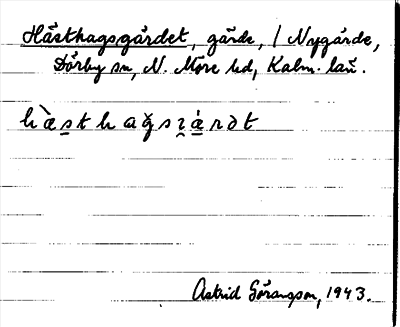 Hästhagsgärdet, gärde, / Nygärde,
Dörby sn, N. Möre hd, Kalm. län.
hæ̀sthağszæ̀rdət
Astrid Göransson, 1943.